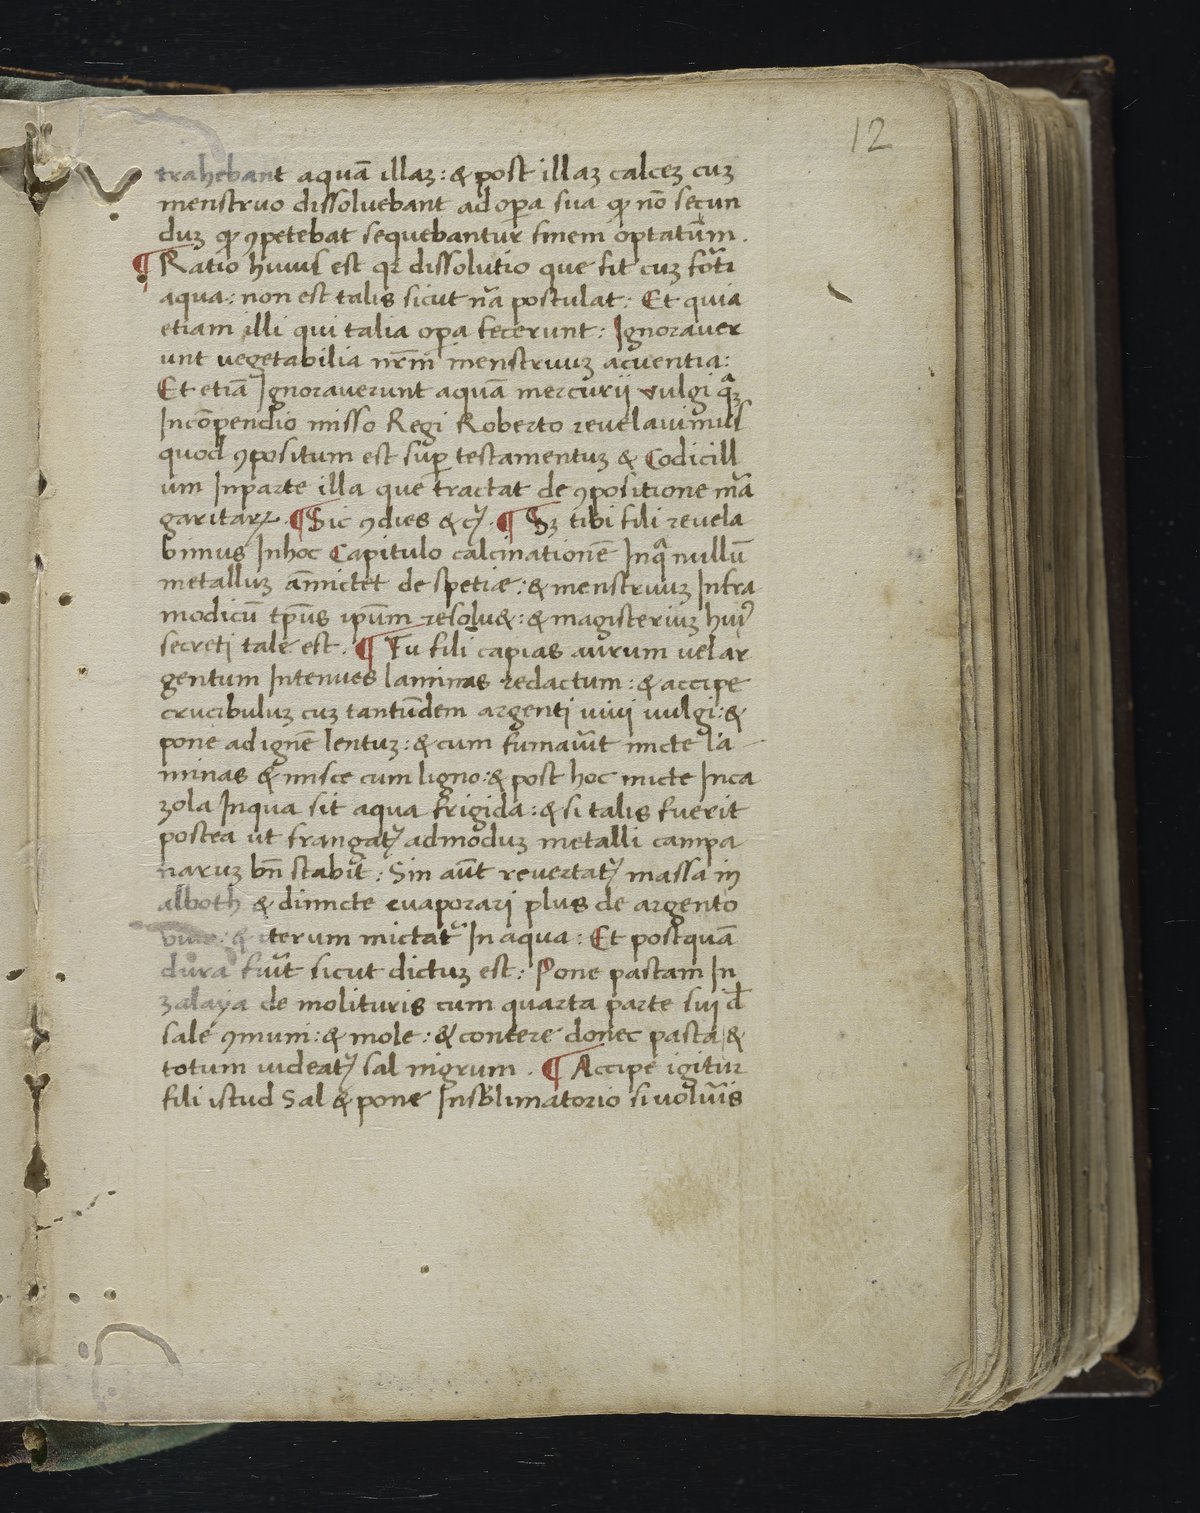 12
trahebant aquā illaꝫ: & post illaꝫ calceꝫ cuꝫ
menstruo dissoluebant ad opa sua qꝫ nō secun
duꝫ qꝫ ꝯpetebat sequebantur finem optatum.
¶ Ratio huius est qr dissolutio que fit cuꝫ forti
aqua: non est talis sicut nā postulat: Et quia
etiam illi qui talia opa fecerunt: Ignorauer
unt vegetabilia nrm̄ menstruuꝫ acuentia:
Et etiā Ignorauerunt aquā mercurij vulgi quaꝫ
Incōpendio misso Regi Roberto reuelauimus
quod ꝯpositum est sup testamentuꝫ & Codicill
um Inparte illa que tractat de ꝯpositione ma
garitaꝝ. ¶ Sic ꝯdies &cꝭ. ¶ Sꝫ tibi fili reuela
bimus Inhoc Capitulo calcinationē Inqua nullū
metalluꝫ amictet de spetiæ: & menstruuꝫ Infra
modicū tp̄us ipūm resolu&: & magisteriuꝫ huiꝰ
secreti tale est. ¶ Tu fili capias aurum uel ar
gentum Intenues laminas redactum: & accipe
crucibuluꝫ cuꝫ tantūdem argenti uiui uulgi: &
pone ad ignē lentuꝫ: & cum fumauit micte la
minas & misce cum ligno: & post hoc micte Inca
zola Inqua sit aqua frigida: & si talis fuerit
postea ut frangatꝭ admoduꝫ metalli campa
naruꝫ bn̄ stabit: Sin aūt reuertatꝭ massa in
alboth & dimicte euaporari plus de argento
& iterum mictatᷣ In aqua: Et postquā
dura fuit sicut dictuꝫ est: Pone pastam In
zalaya de molituris cum quarta parte sui đ
sale ꝯmuni: & mole: & contere donec pasta &
totum uideatꝭ sal nigrum. ¶ Accipe igitur
fili istud Sal & pone Insublimatorio si uolueris